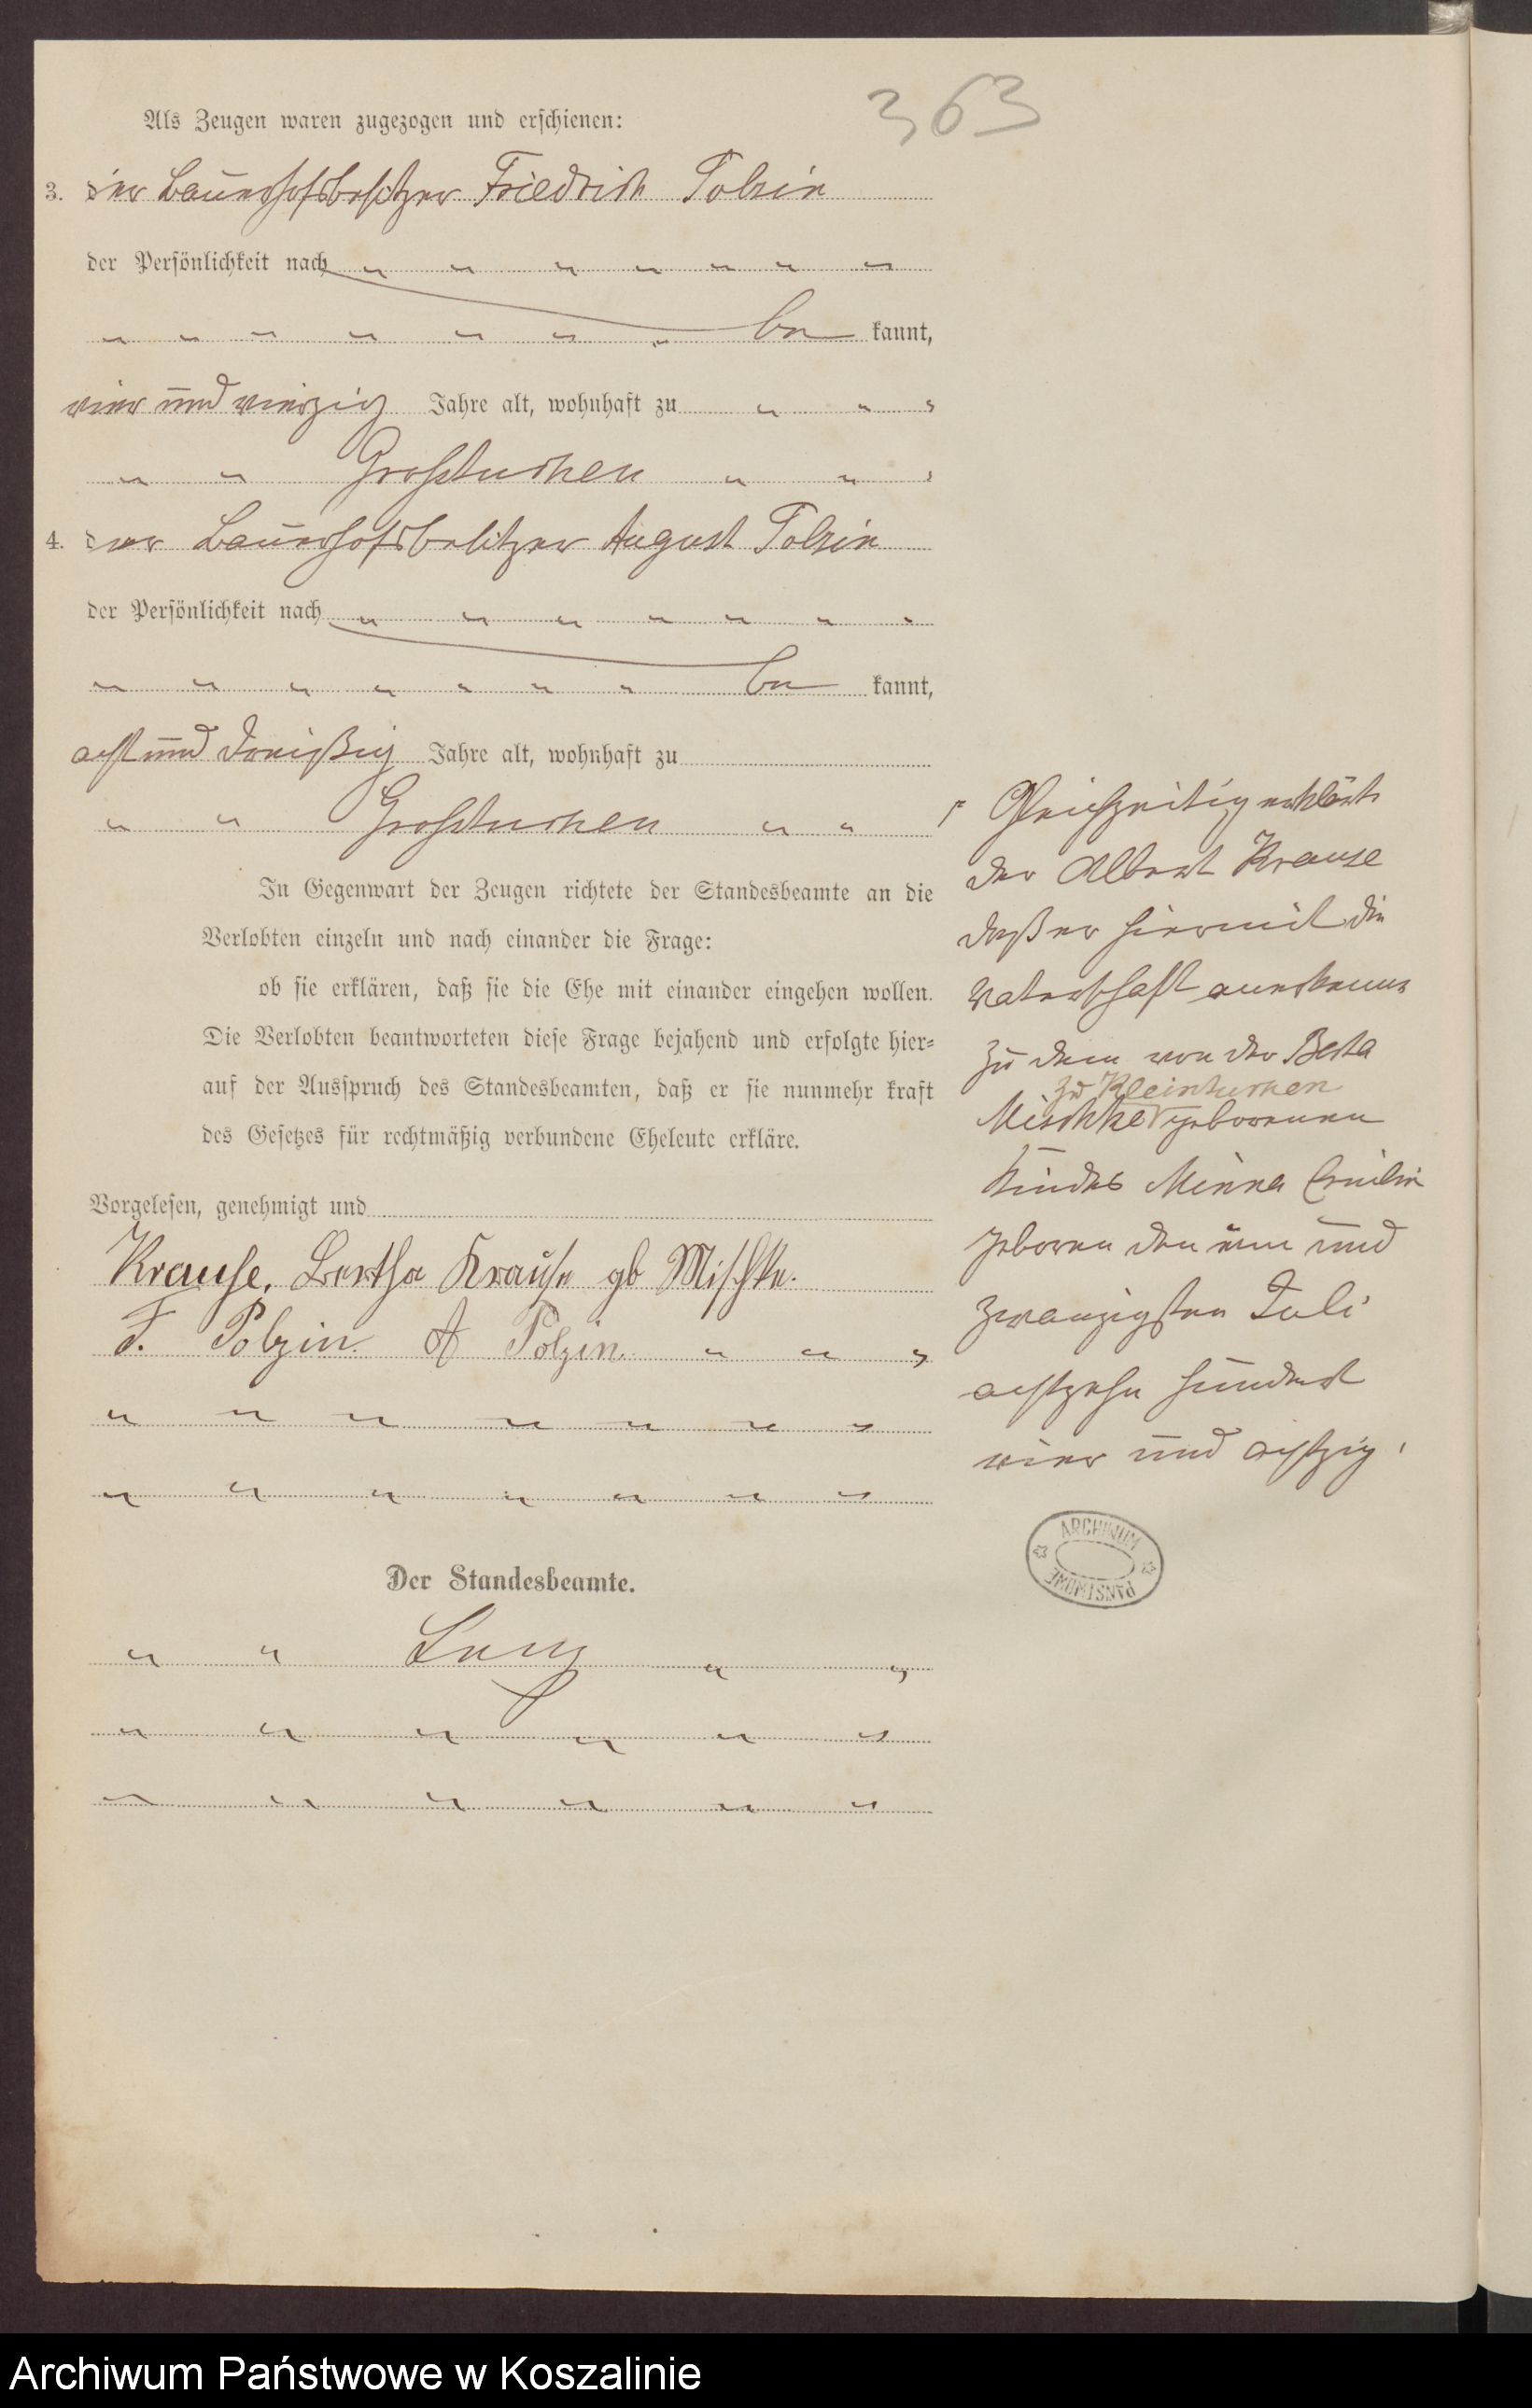 363
Als Zeugen waren zugezogen und erschienen:
3. der Bauerhofsbesitzer Friedrich Polzin
der Persönlichkeit nach
be kannt,
vier und vierzig Jahre alt, wohnhaft zu
Grosstuchen
4. der Bauerhofsbesitzer August Polzin
der Persönlichkeit nach
be kannt,
acht und dreißig Jahre alt, wohnhaft zu
Grosstuchen
In Gegenwart der Zeugen richtete der Standesbeamte an die
Verlobten einzeln und nach einander die Frage:
ob sie erklären, daß sie die Ehe mit einander eingehen wollen.
Die Verlobten beantworteten diese Frage bejahend und erfolgte hier=
auf der Ausspruch des Standesbeamten, daß er sie nunmehr kraft
des Gesetzes für rechtmäßig verbundene Eheleute erkläre.
Vorgelesen, genehmigt und
Krause. Bertha Krause gb Mischke.
F. Polzin. A Polzin.
Der Standesbeamte.
Gleichzeitig erklärt
der Albert Krause
daß er hiermit die
Vaterschaft anerkenne
zu dem von der Berta
zu Kleintuchen
Mischke geborenen
Kindes Minna Emilie
geboren den ein und
zwanzigsten Juli
achtzehn hundert
vier und achtzig.
ARCHIWUM
PAŃSTWOWE
Archiwum Państwowe w Koszalinie